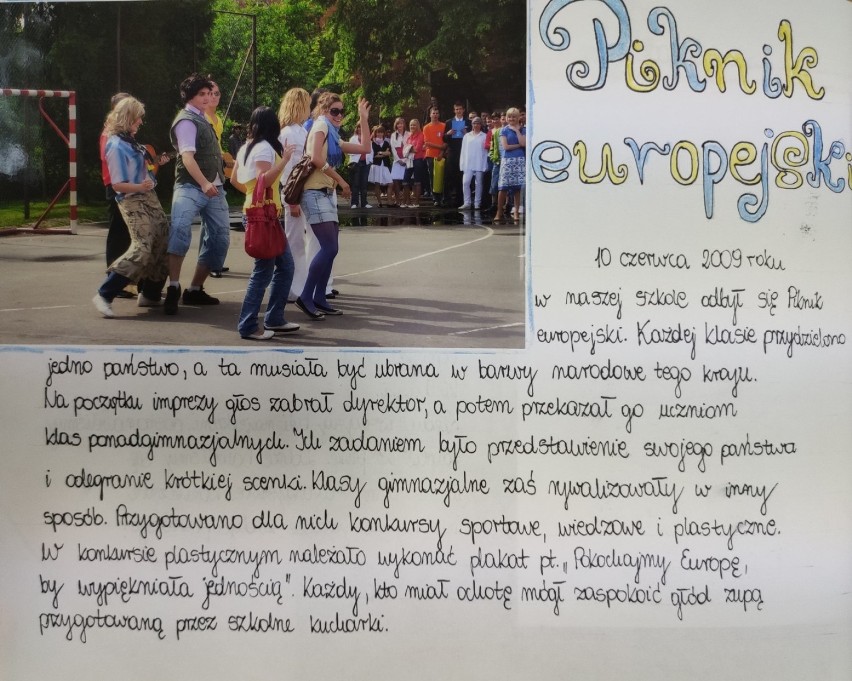 Piknik
europejski
10 czerwca 2009 roku
w naszej szkole odbył się Piknik
europejski. Każdej klasie przydzielono
jedno państwo, a ta musiała być ubrana w barwy narodowe tego kraju.
Na początku imprezy głos zabrał dyrektor, a potem przekazał go uczniom
klas ponadgimnazjalnych. Ich zadaniem było przedstawienie swojego państwa
i odegranie krótkiej scenki. Klasy gimnazjalne zaś rywalizowały w inny
sposób. Przygotowano dla nich konkursy sportowe, wiedzowe i plastyczne.
W konkursie plastycznym należało wykonać plakat pt. „Pokochajmy Europę,
by wypiękniała jednością". Każdy, kto miał ochotę mógł zaspokoić głód zupą
przygotowaną przez szkolne kucharki.